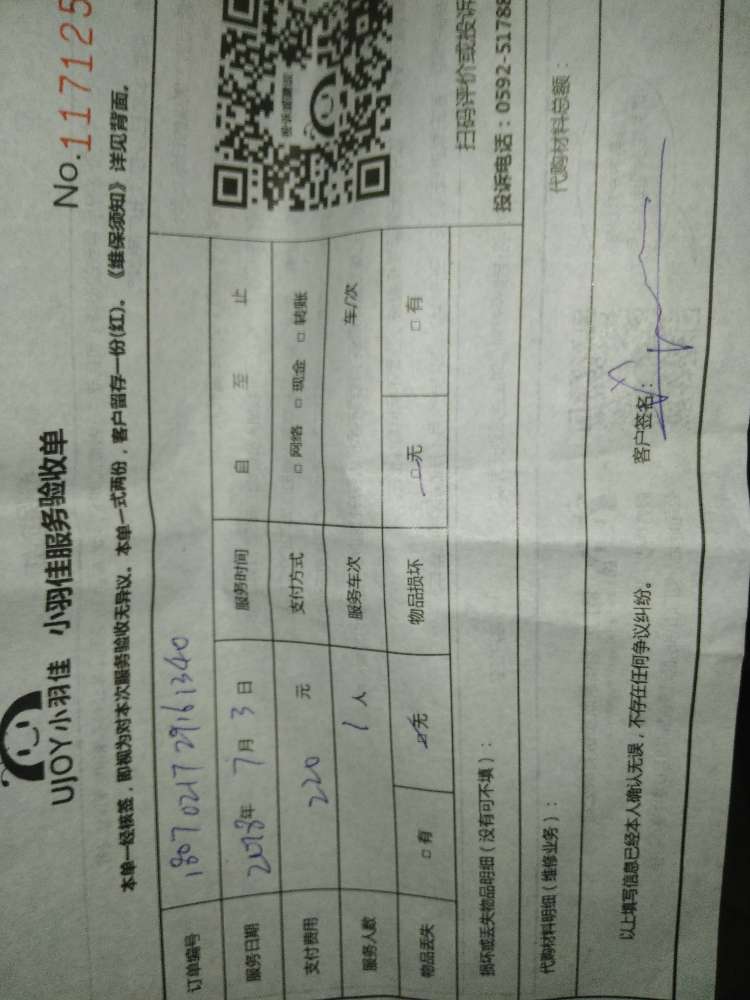 UJOY小羽佳 小羽佳服务验收单
No.117125
本单一经核签，即视为对本次服务验收无异议。本单一式两份，客户留存一份(红)。《维保须知》详见背面。
订单编号 1807021729161340
服务日期 2018年 7月 3日 服务时间 自 至 止
支付费用 220 元 支付方式 □ 网络 □ 现金 □ 转账
服务人数 1 人 服务车次 车/次
物品丢失 □ 有 □ 无 物品损坏 □ 无 □ 有
投诉或建议
扫码评价或投诉
投诉电话：0592-51788
损坏或丢失物品明细（没有可不填）：
代购材料明细（维修业务）： 代购材料总额：
以上填写信息已经本人确认无误，不存在任何争议纠纷。 客户签名：